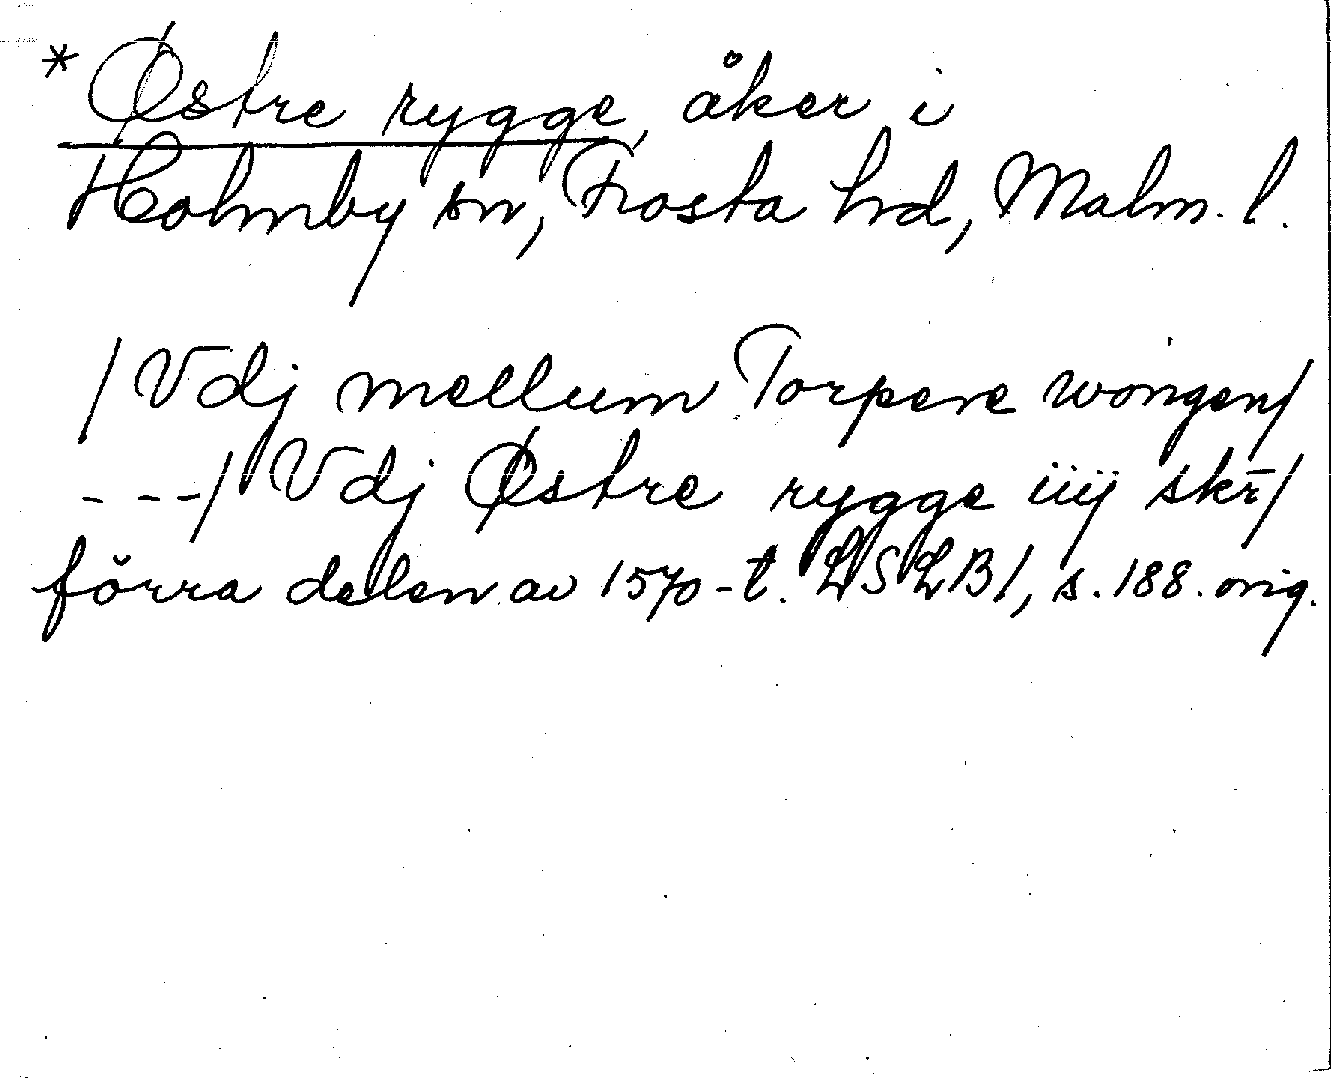 * Østre rygge, åker i
Holmby sn, Frosta hd, Malm. l.
/ Vdj mellum Torpere wongen/
- - -/ Vdj Østre rygge iiij skr̄/
förra delen av 1570-t. LSLB1, s. 188. orig.